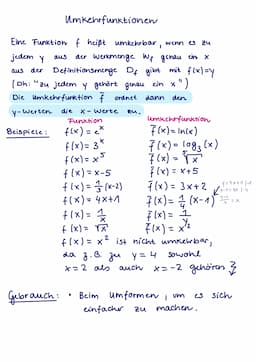 Umkehrfunktionen
Eine Funktion f heißt umkehrbar, wenn es zu
jedem y aus der Wertemenge Wf genau ein x
aus der Definitionsmenge Df gibt mit f(x)=y
(Dh: "zu jedem y gehört genau ein x")
Die Umkehrfunktion f̄ ordnet dann den
y-Werten die x-Werte zu.
Funktion Umkehrfunktion
Beispiele: f(x) = eˣ f̄(x) = ln(x)
f(x) = 3ˣ f̄(x) = log₃(x)
f(x) = x⁵ f̄(x) = ⁵√x
f(x) = x-5 f̄(x) = x+5
f(x) = 1/3 (x-2) f̄(x) = 3x+2
f(x) = 4x+1 f̄(x) = 1/4 (x-1)
f(x) = 1/x f̄(x) = 1/y
f(x) = √x f̄(x) = x²
f(x) = x² ist nicht umkehrbar,
da z.B. zu y = 4 sowohl
x=2 als auch x=-2 gehören
Gebrauch: • Beim Umformen, um es sich
einfacher zu machen.